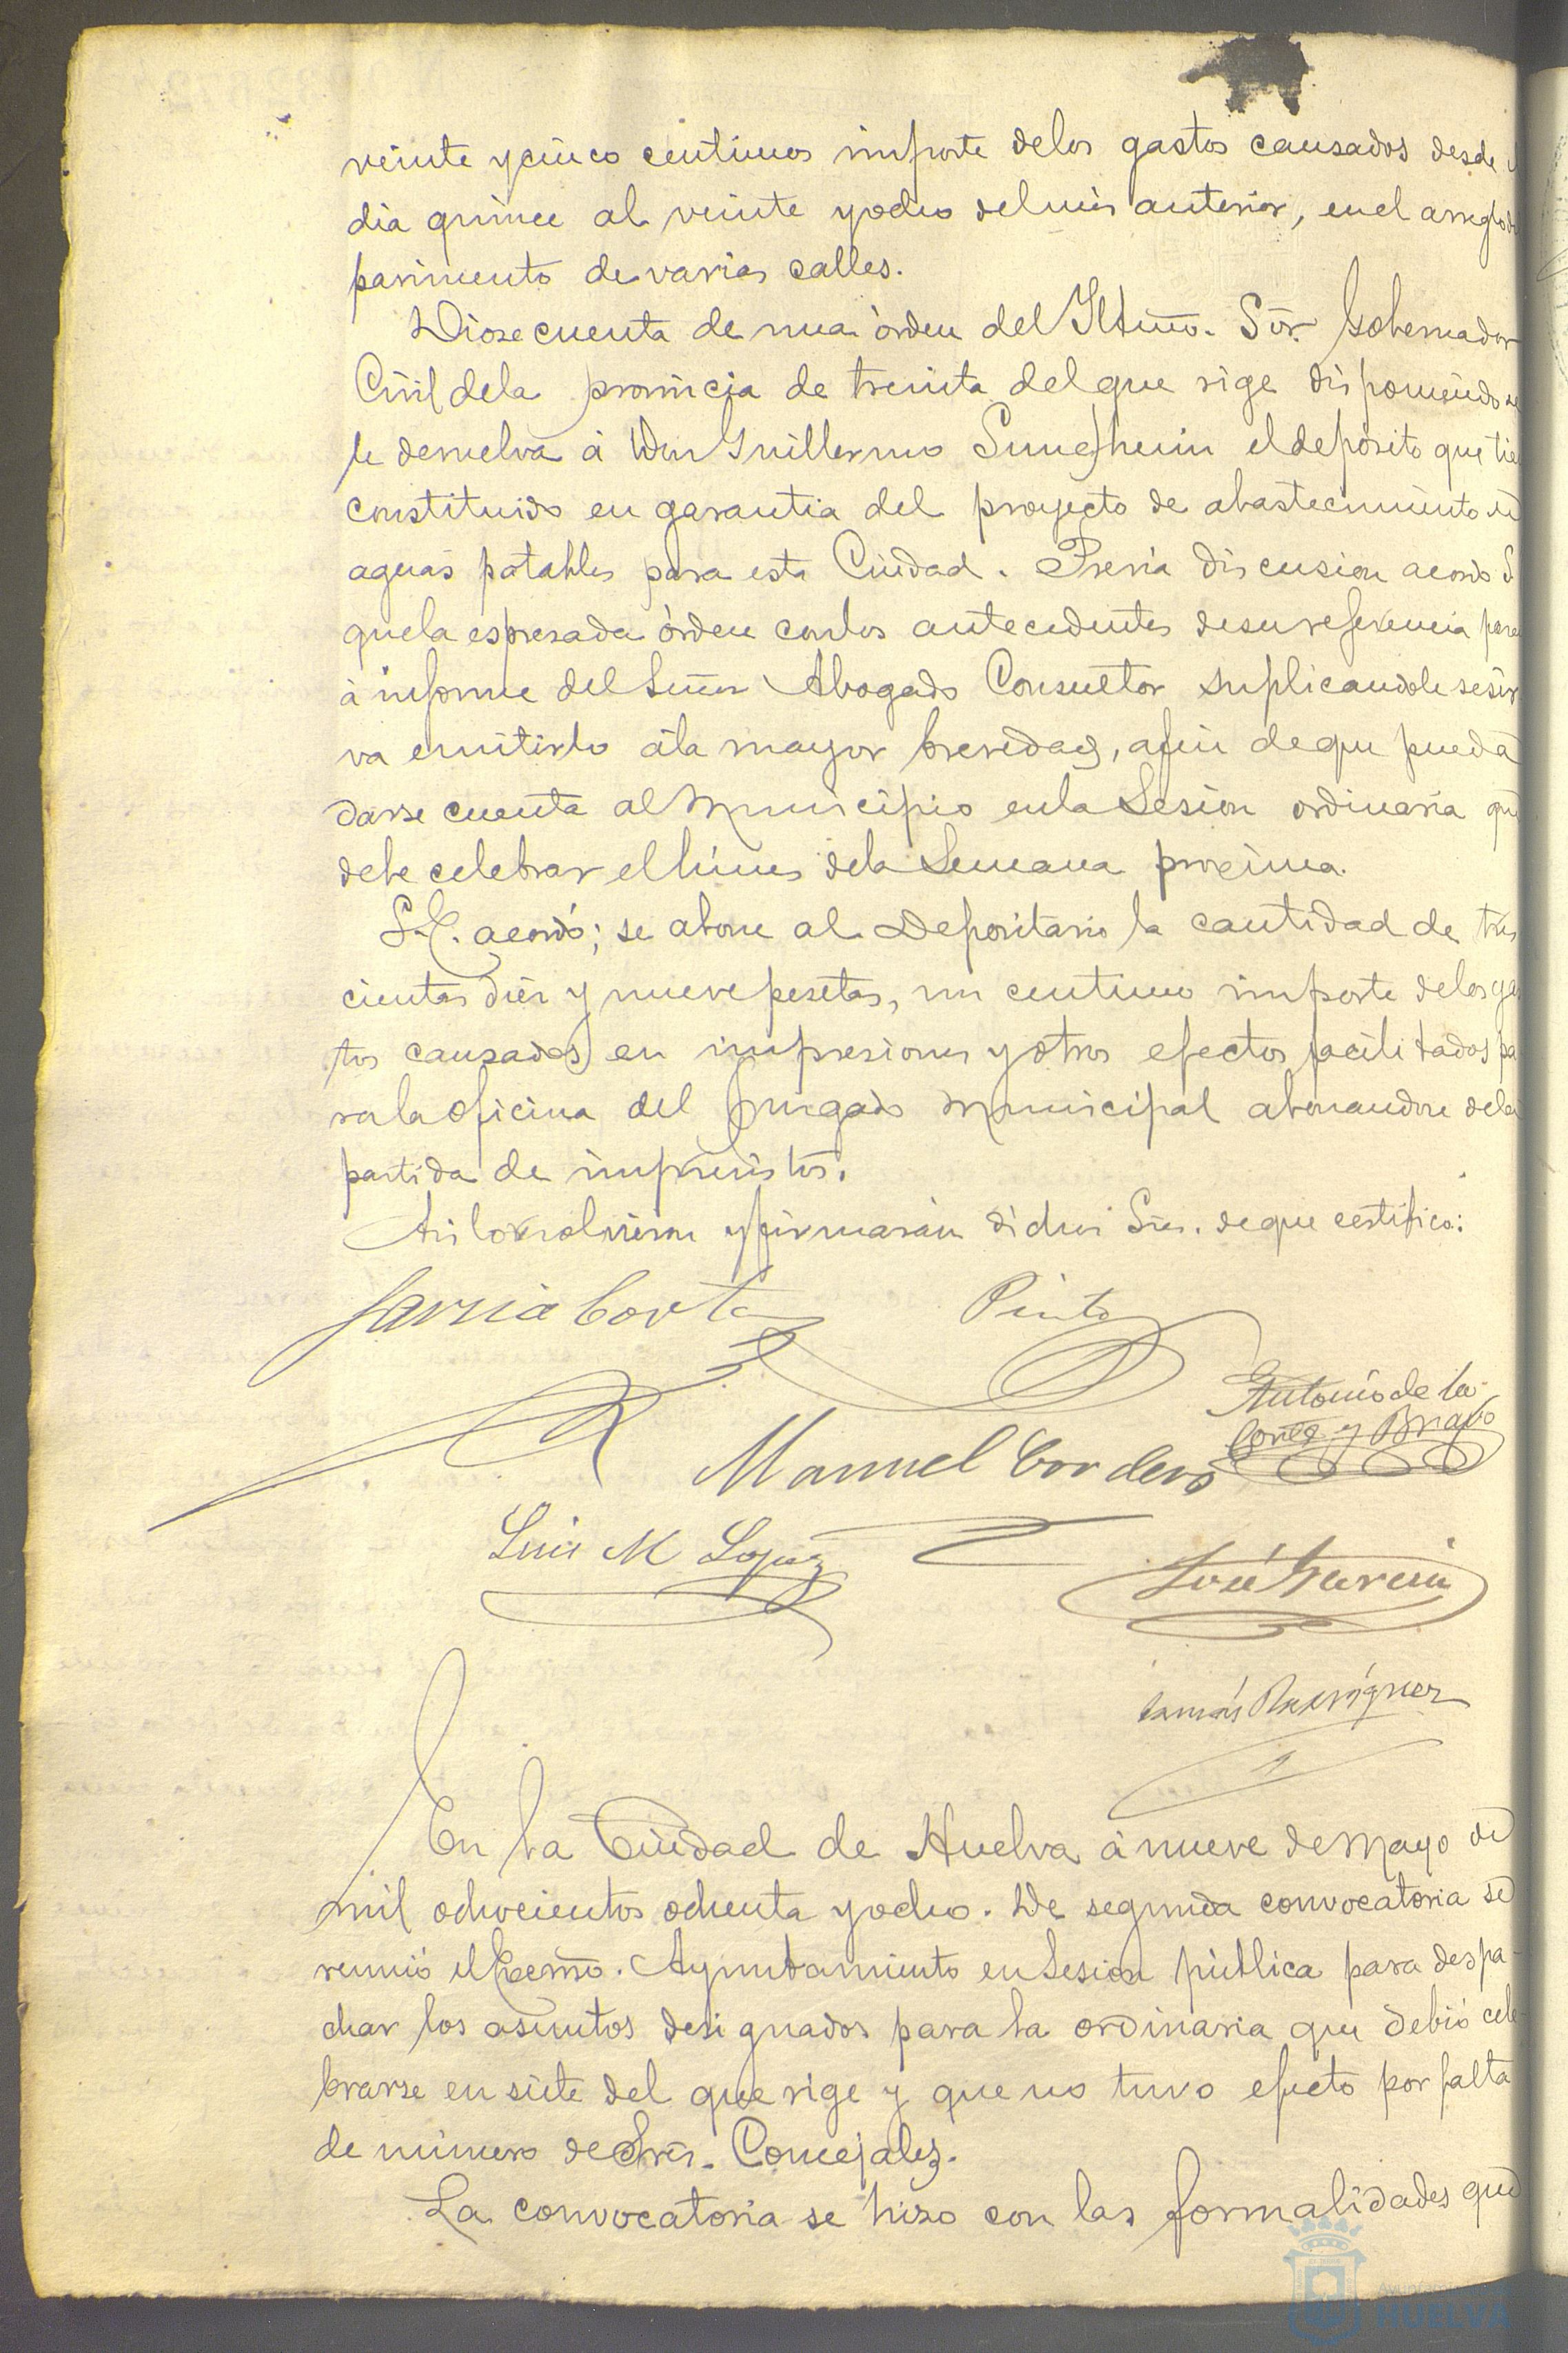 veinte y cinco centimos importe delos gastos causados desde
dia quince al veinte yocho delmes anterior, enel arreglo
pavimento devarias calles.
Diose cuenta de una órden del Iltmo. Sór. Gobernador
Civil dela provincia de treinta delque rige disponiendo se
le devuelva á Don Guillermo Sungheim eldeposito que tie
constituido en garantia del proyecto de abastecimiento de
aguas potables para esta Ciudad. Previa discusion acordó S
quela espresada órden conlos antecedentes desureferencia pase
á informe del Señor Abogado Consultor suplicandole sesir
va emitirlo ála mayor brevedad, afin deque pueda
darse cuenta al Municipio enla Sesion ordinaria que
debe celebrar ellúnes dela Semana proxima.
S.E. acordó; se abone al Depositario la cantidad de tres
cientas diez y nuevepesetas, un centimo importe delosgas
tos causados en impresiones yotros efectos facilitados pa
rala oficina del Juzgado Municipal abonandose dela
partida de imprevistos.
Asi loresolvieron yfirmarán dichos Sres. deque certifico:
Garcia Corta
Pinto
Antonio de la
Corte y Bravo
Manuel Cordero
Luis M Lopez
José Garcia
Tomás Rodríguez
En la Ciudad de Huelva á nueve deMayo de
mil ochocientos ochenta yocho. De segunda convocatoria se
reunió elExcmo. Ayuntamiento enSesion pública para despa-
char los asuntos designados para la ordinaria que debió cele-
brarse en siete del que rige y que no tuvo efecto por falta
de número deSres. Concejales.
La convocatoria se hizo con las formalidades que
HUELVA